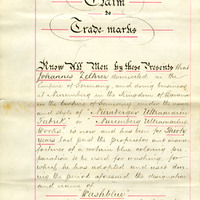 Claim
to
Trade-marks
Know All Men by these Presents that
Johannes Zeltner domiciled in the
Empire of Germany, and doing business
at Nuremberg in the Kingdom of Bavaria
in the Empire of Germany under the name
and style of "Nürnberger Ultramarin
Fabrik" or "Nuremberg Ultramarine
Works" is now and has been for Thirty
years last past the proprietor and manu-
facturer of a certain blue coloring pre-
paration to be used for washing, for
which he has adopted and used dur-
ing the period aforesaid the designation
and name of
"Washblue"